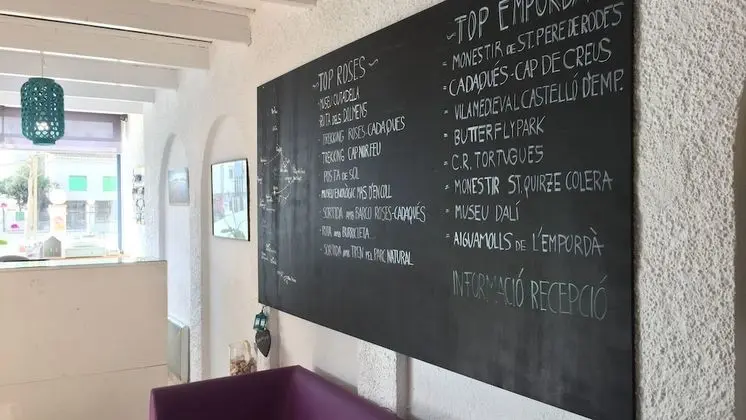 ~TOP ROSES~
- MUSEU CIUTADELA
- RUTA DELS DÒLMENS
- TREKKING ROSES-CADAQUÉS
- TREKKING CAP NORFEU
- POSTA DE SOL
- MUSEU ENOLÒGIC MAS D'EN COLL
- SORTIDA AMB BARCO ROSES-CADAQUÉS
- RUTA AMB BURRICLETA
- SORTIDA AMB TREN PEL PARC NATURAL
~TOP EMPORDÀ
- MONESTIR DE ST. PERE DE RODES
- CADAQUÉS-CAP DE CREUS
- VILA MEDIEVAL CASTELLÓ D'EMP.
- BUTTERFLY PARK
- C.R. TORTUGUES
- MONESTIR ST. QUIRZE COLERA
- MUSEU DALÍ
- AIGUAMOLLS DE L'EMPORDÀ
INFORMACIÓ RECEPCIÓ